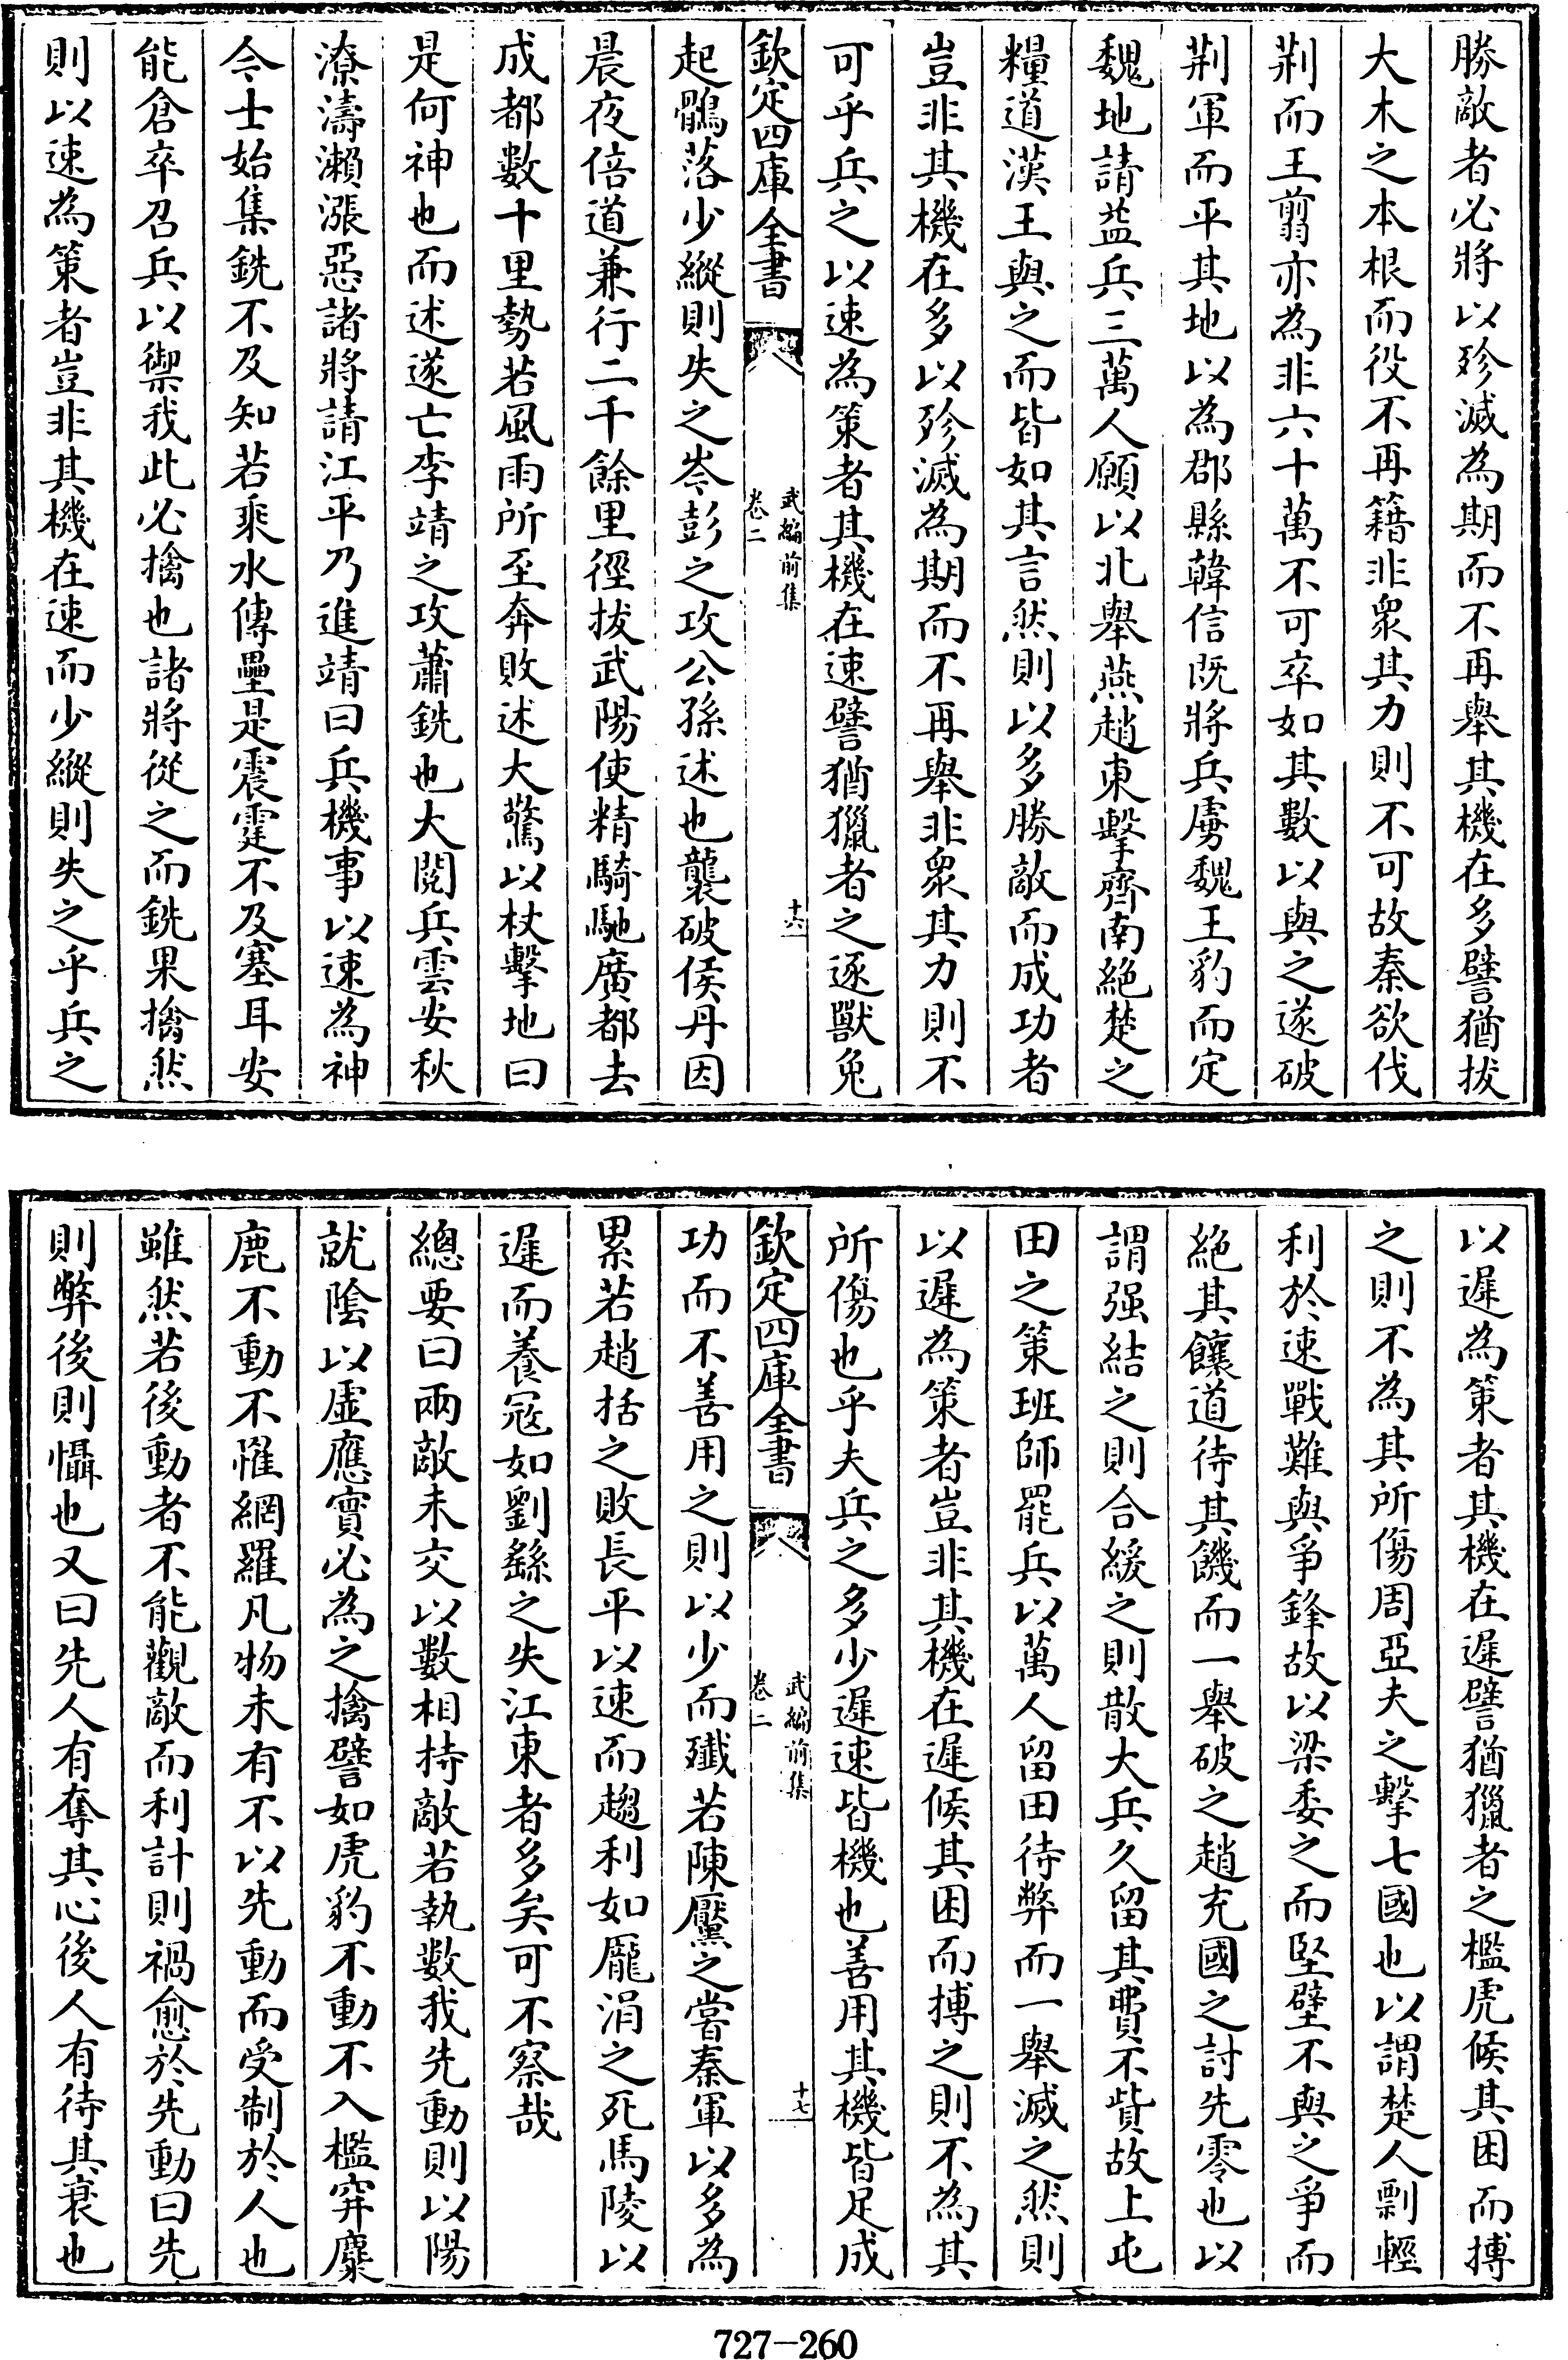 勝敵者必將以殄滅為期而不再舉其機在多譬猶拔
大木之本根而役不再籍非衆其力則不可故秦欲伐
荆而王翦亦為非六十萬不可卒如其數以與之遂破
荆軍而平其地以為郡縣韓信既將兵虜魏王豹而定
魏地請益兵三萬人願以北舉燕趙東擊齊南絕楚之
糧道漢王與之而皆如其言然則以多勝敵而成功者
豈非其機在多以殄滅為期而不再舉非衆其力則不
可乎兵之以速為策者其機在速譬猶獵者之逐獸兔
欽定四庫全書
武編前集
卷二
十六
起鶻落少縱則失之岑彭之攻公孫述也襲破侯丹因
晨夜倍道兼行二千餘里徑拔武陽使精騎馳廣都去
成都數十里勢若風雨所至奔敗述大驚以杖擊地曰
是何神也而述遂亡李靖之攻蕭銑也大閱兵雲安秋
潦濤瀨漲惡諸將請江平乃進靖曰兵機事以速為神
今士始集銑不及知若乘水傳壘是震霆不及塞耳安
能倉卒召兵以禦我此必擒也諸將從之而銑果擒然
則以速為策者豈非其機在速而少縱則失之乎兵之
以遲為策者其機在遲譬猶獵者之檻虎候其困而搏
之則不為其所傷周亞夫之擊七國也以謂楚人剽輕
利於速戰難與爭鋒故以梁委之而堅壁不與之爭而
絕其饟道待其饑而一舉破之趙充國之討先零也以
謂强結之則合緩之則散大兵久留其費不貲故上屯
田之策班師罷兵以萬人留田待弊而一舉滅之然則
以遲為策者豈非其機在遲候其困而搏之則不為其
所傷也乎夫兵之多少遲速皆機也善用其機皆足成
欽定四庫全書
武編前集
卷二
十七
功而不善用之則以少而殲若陳黶之嘗秦軍以多為
累若趙括之敗長平以速而趨利如龐涓之死馬陵以
遲而養寇如劉繇之失江東者多矣可不察哉
總要曰兩敵未交以數相持敵若執數我先動則以陽
就陰以虛應實必為之擒譬如虎豹不動不入檻穽麋
鹿不動不罹網羅凡物未有不以先動而受制於人也
雖然若後動者不能觀敵而利計則禍愈於先動曰先
則弊後則懾也又曰先人有奪其心後人有待其衰也
727-260